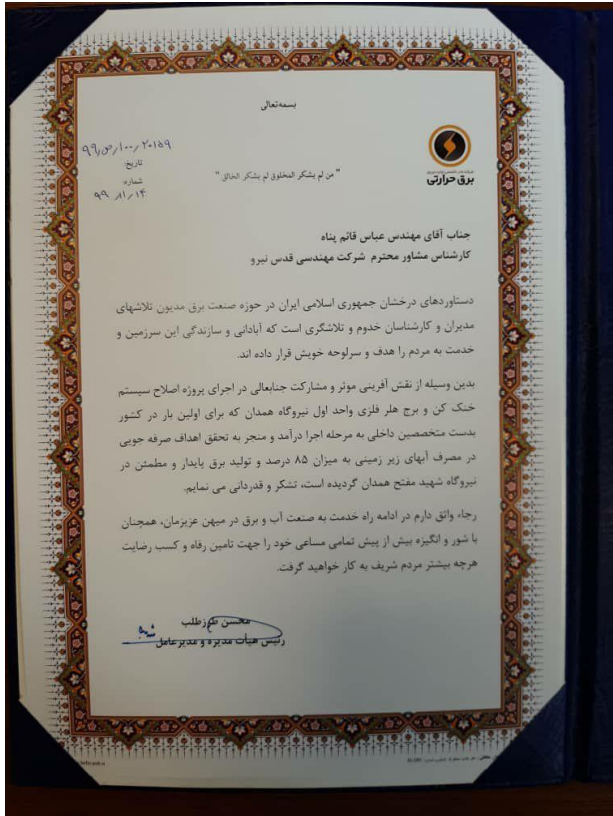 بسمه‌تعالی
۹۹/ص/۱۰۰/۲۰۱۵۹
تاریخ:
شماره:
۹۹/۸/۱۴
برق حرارتی
" من لم یشکر المخلوق لم یشکر الخالق "
جناب آقای مهندس عباس قائم پناه
کارشناس مشاور محترم شرکت مهندسی قدس نیرو
دستاوردهای درخشان جمهوری اسلامی ایران در حوزه صنعت برق مدیون تلاشهای
مدیران و کارشناسان خدوم و تلاشگری است که آبادانی و سازندگی این سرزمین و
خدمت به مردم را هدف و سرلوحه خویش قرار داده اند.
بدین وسیله از نقش آفرینی موثر و مشارکت جنابعالی در اجرای پروژه اصلاح سیستم
خنک کن و برج هلر فلزی واحد اول نیروگاه همدان که برای اولین بار در کشور
بدست متخصصین داخلی به مرحله اجرا درآمد و منجر به تحقق اهداف صرفه جویی
در مصرف آبهای زیر زمینی به میزان ۸۵ درصد و تولید برق پایدار و مطمئن در
نیروگاه شهید مفتح همدان گردیده است، تشکر و قدردانی می نمایم.
رجاء واثق دارم در ادامه راه خدمت به صنعت آب و برق در میهن عزیزمان، همچنان
با شور و انگیزه بیش از پیش تمامی مساعی خود را جهت تامین رفاه و کسب رضایت
هرچه بیشتر مردم شریف به کار خواهید گرفت.
محسن طرزطلب
رئیس هیأت مدیره و مدیرعامل